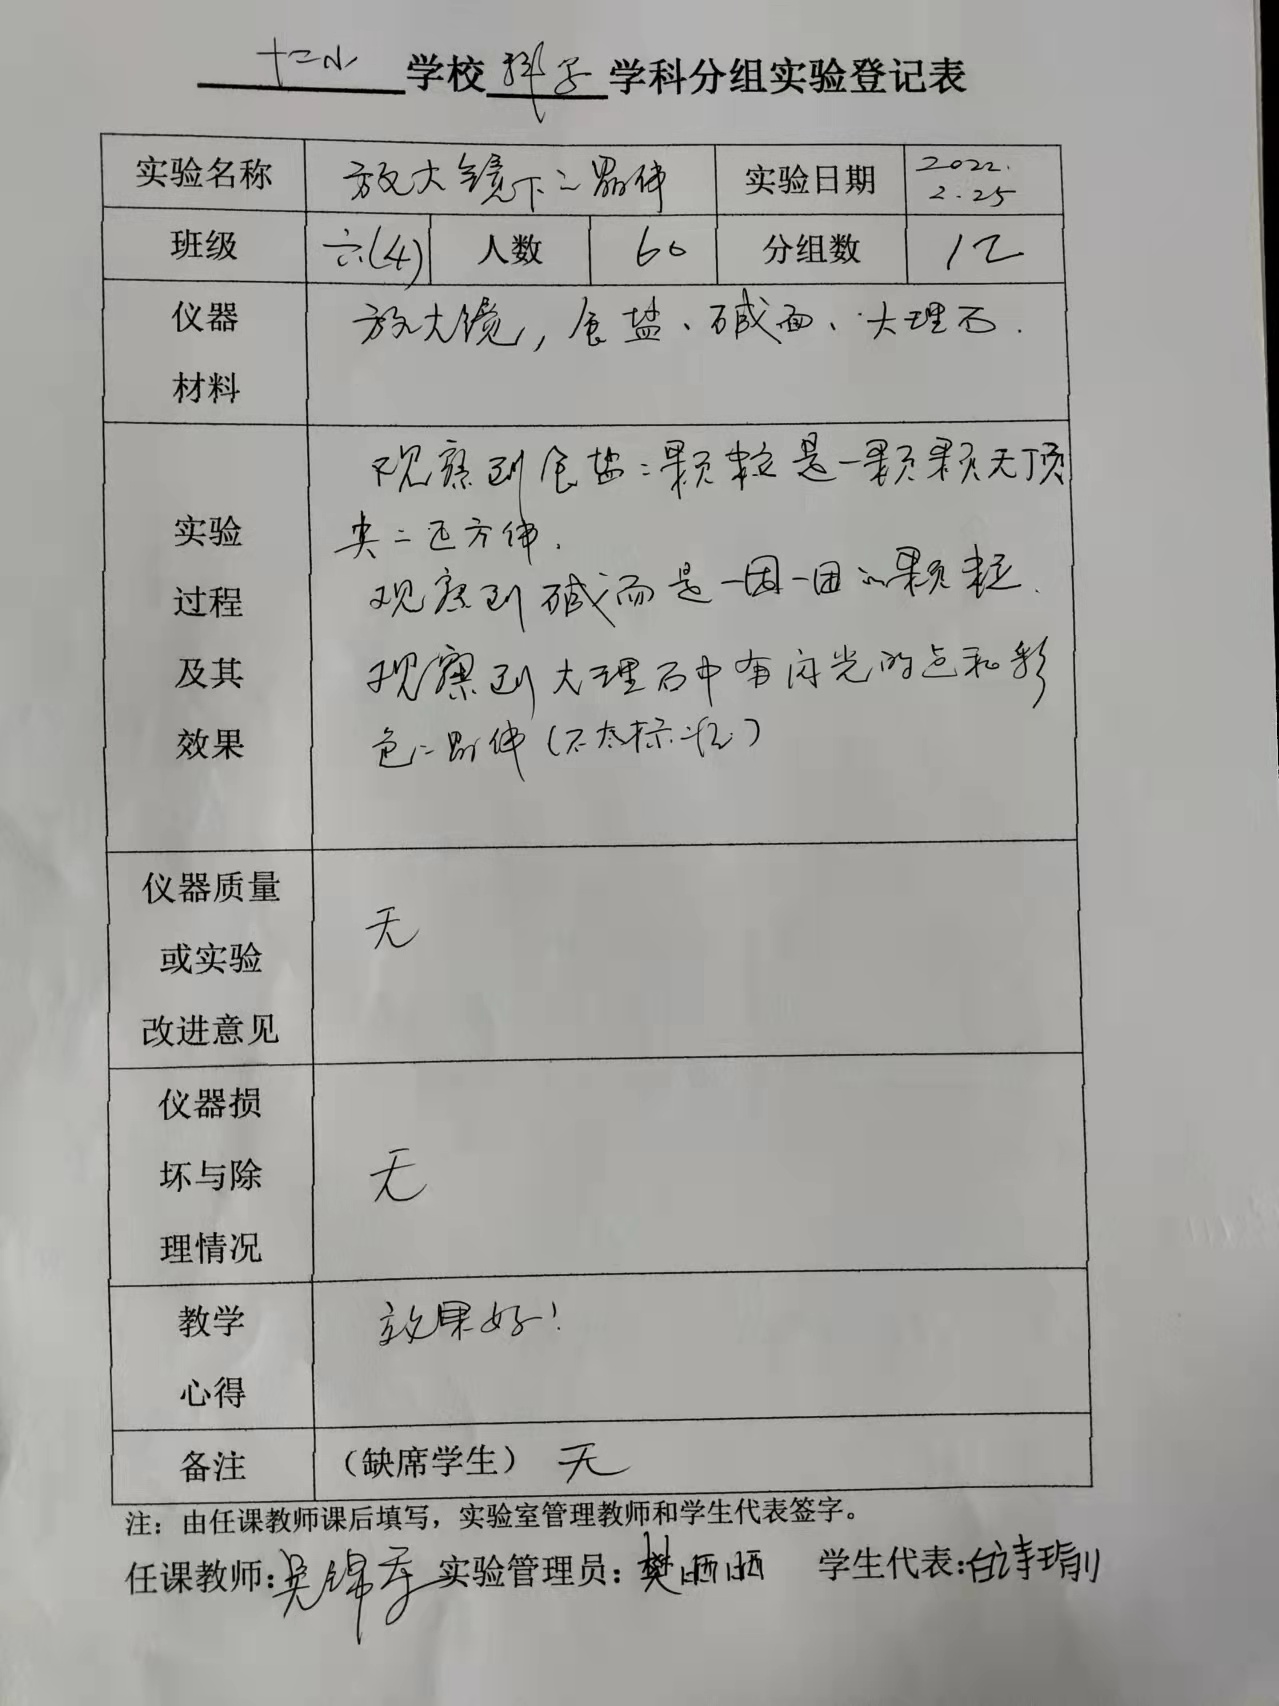 十二小学校科学学科分组实验登记表
实验名称 放大镜下的晶体 实验日期 2022.
2.25
班级 六(4) 人数 60 分组数 12
仪器 放大镜，食盐、碱面、大理石.
材料
观察到食盐的颗粒是一颗颗无顶
实验 尖的正方体.
过程 观察到碱面是一团一团的颗粒.
及其 观察到大理石中有闪光的点和彩
效果 色的晶体(不太标准)
仪器质量
或实验 无
改进意见
仪器损
坏与除 无
理情况
教学 效果好!
心得
备注 （缺席学生） 无
注：由任课教师课后填写，实验室管理教师和学生代表签字。
任课教师: 吴锦 实验管理员: 樊晒晒 学生代表: 白诗